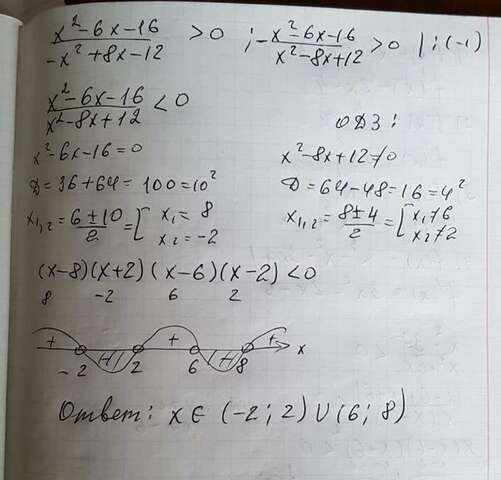 (x²-6x-16)/(-x²+8x-12) > 0 ; -(x²-6x-16)/(x²-8x+12) > 0 | ; (-1)
(x²-6x-16)/(x²-8x+12) < 0
ОДЗ :
x²-6x-16=0
x²-8x+12≠0
D=36+64=100=10²
D=64-48=16=4²
x₁,₂=(6±10)/2=[x₁=8 x₂=-2
x₁,₂=(8±4)/2=[x₁≠6 x₂≠2
(x-8)(x+2)(x-6)(x-2)<0
8 -2 6 2
+ - + - + x
-2 2 6 8
Ответ: x∈(-2; 2)∪(6; 8)